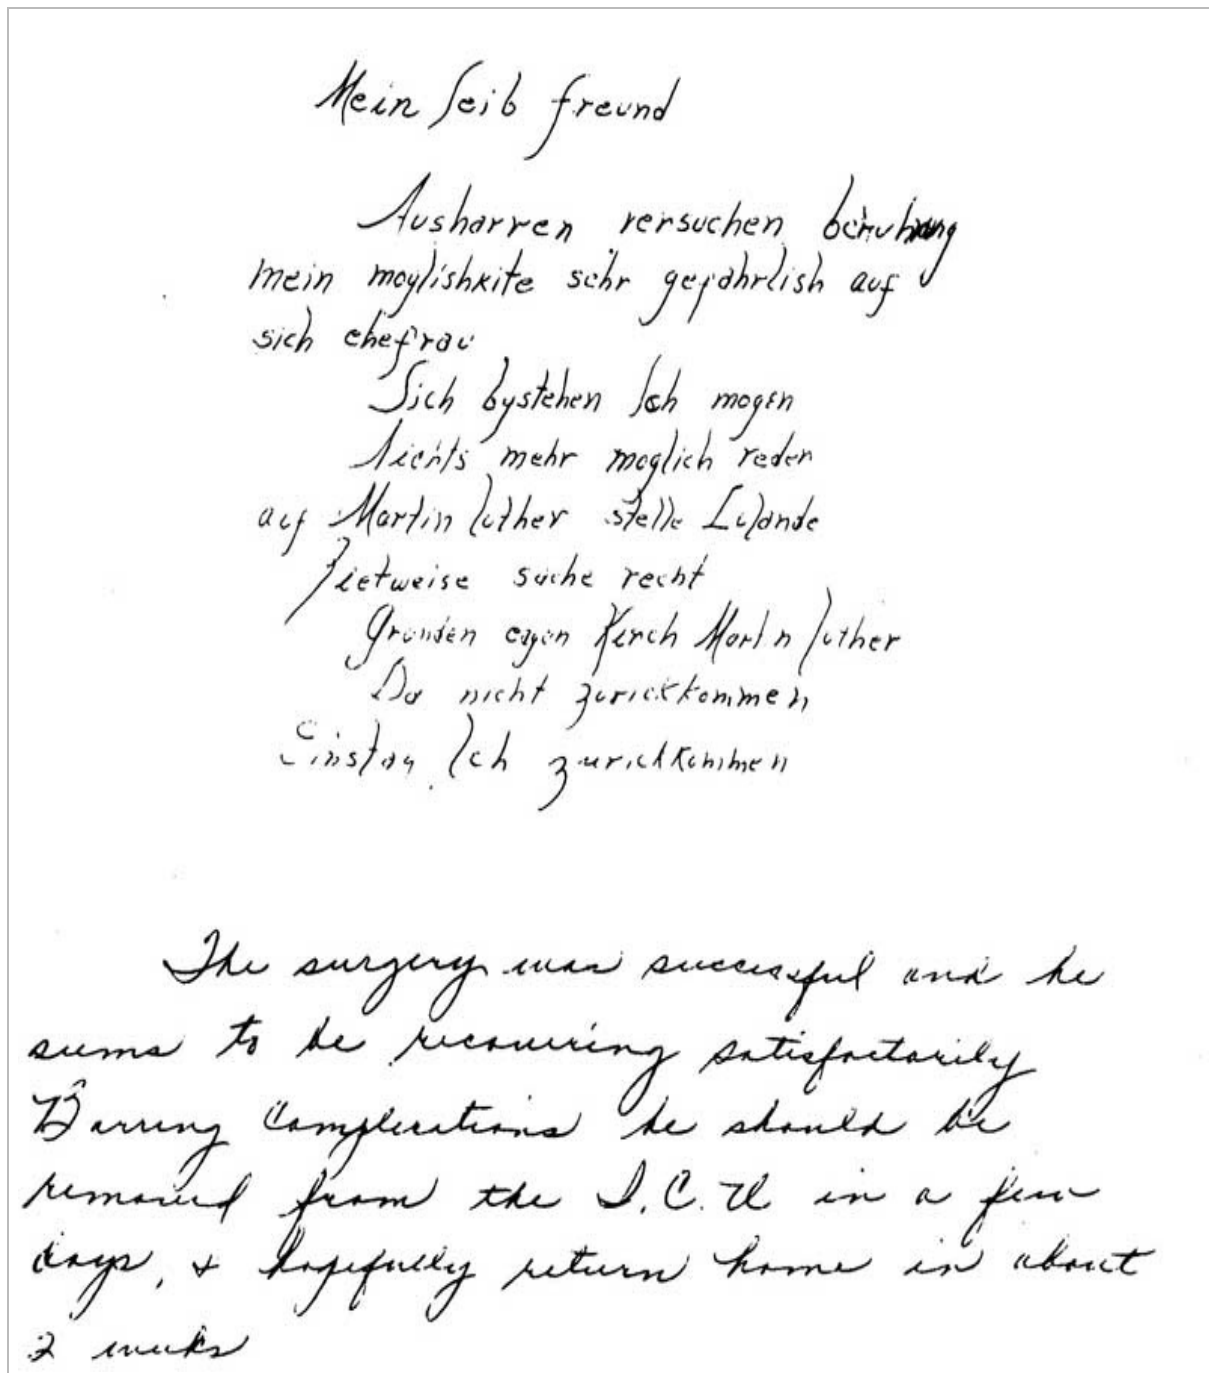 Mein leib freund
Ausharren versuchen
mein moglishkite sehr gefahrlish auf
sich ehefrau
Sich bystehen Ich mogen
Nichts mehr moglich reden
auf Martin luther stelle
Zietweise suche recht
Grunden egen Kerch Martin luther
Du nicht zurickkommen
Einstag Ich zurickkommen
The surgery was successful and he
seems to be recovering satisfactorily
Barring Complications he should be
removed from the I.C.U in a few
days, & hopefully return home in about
2 weeks